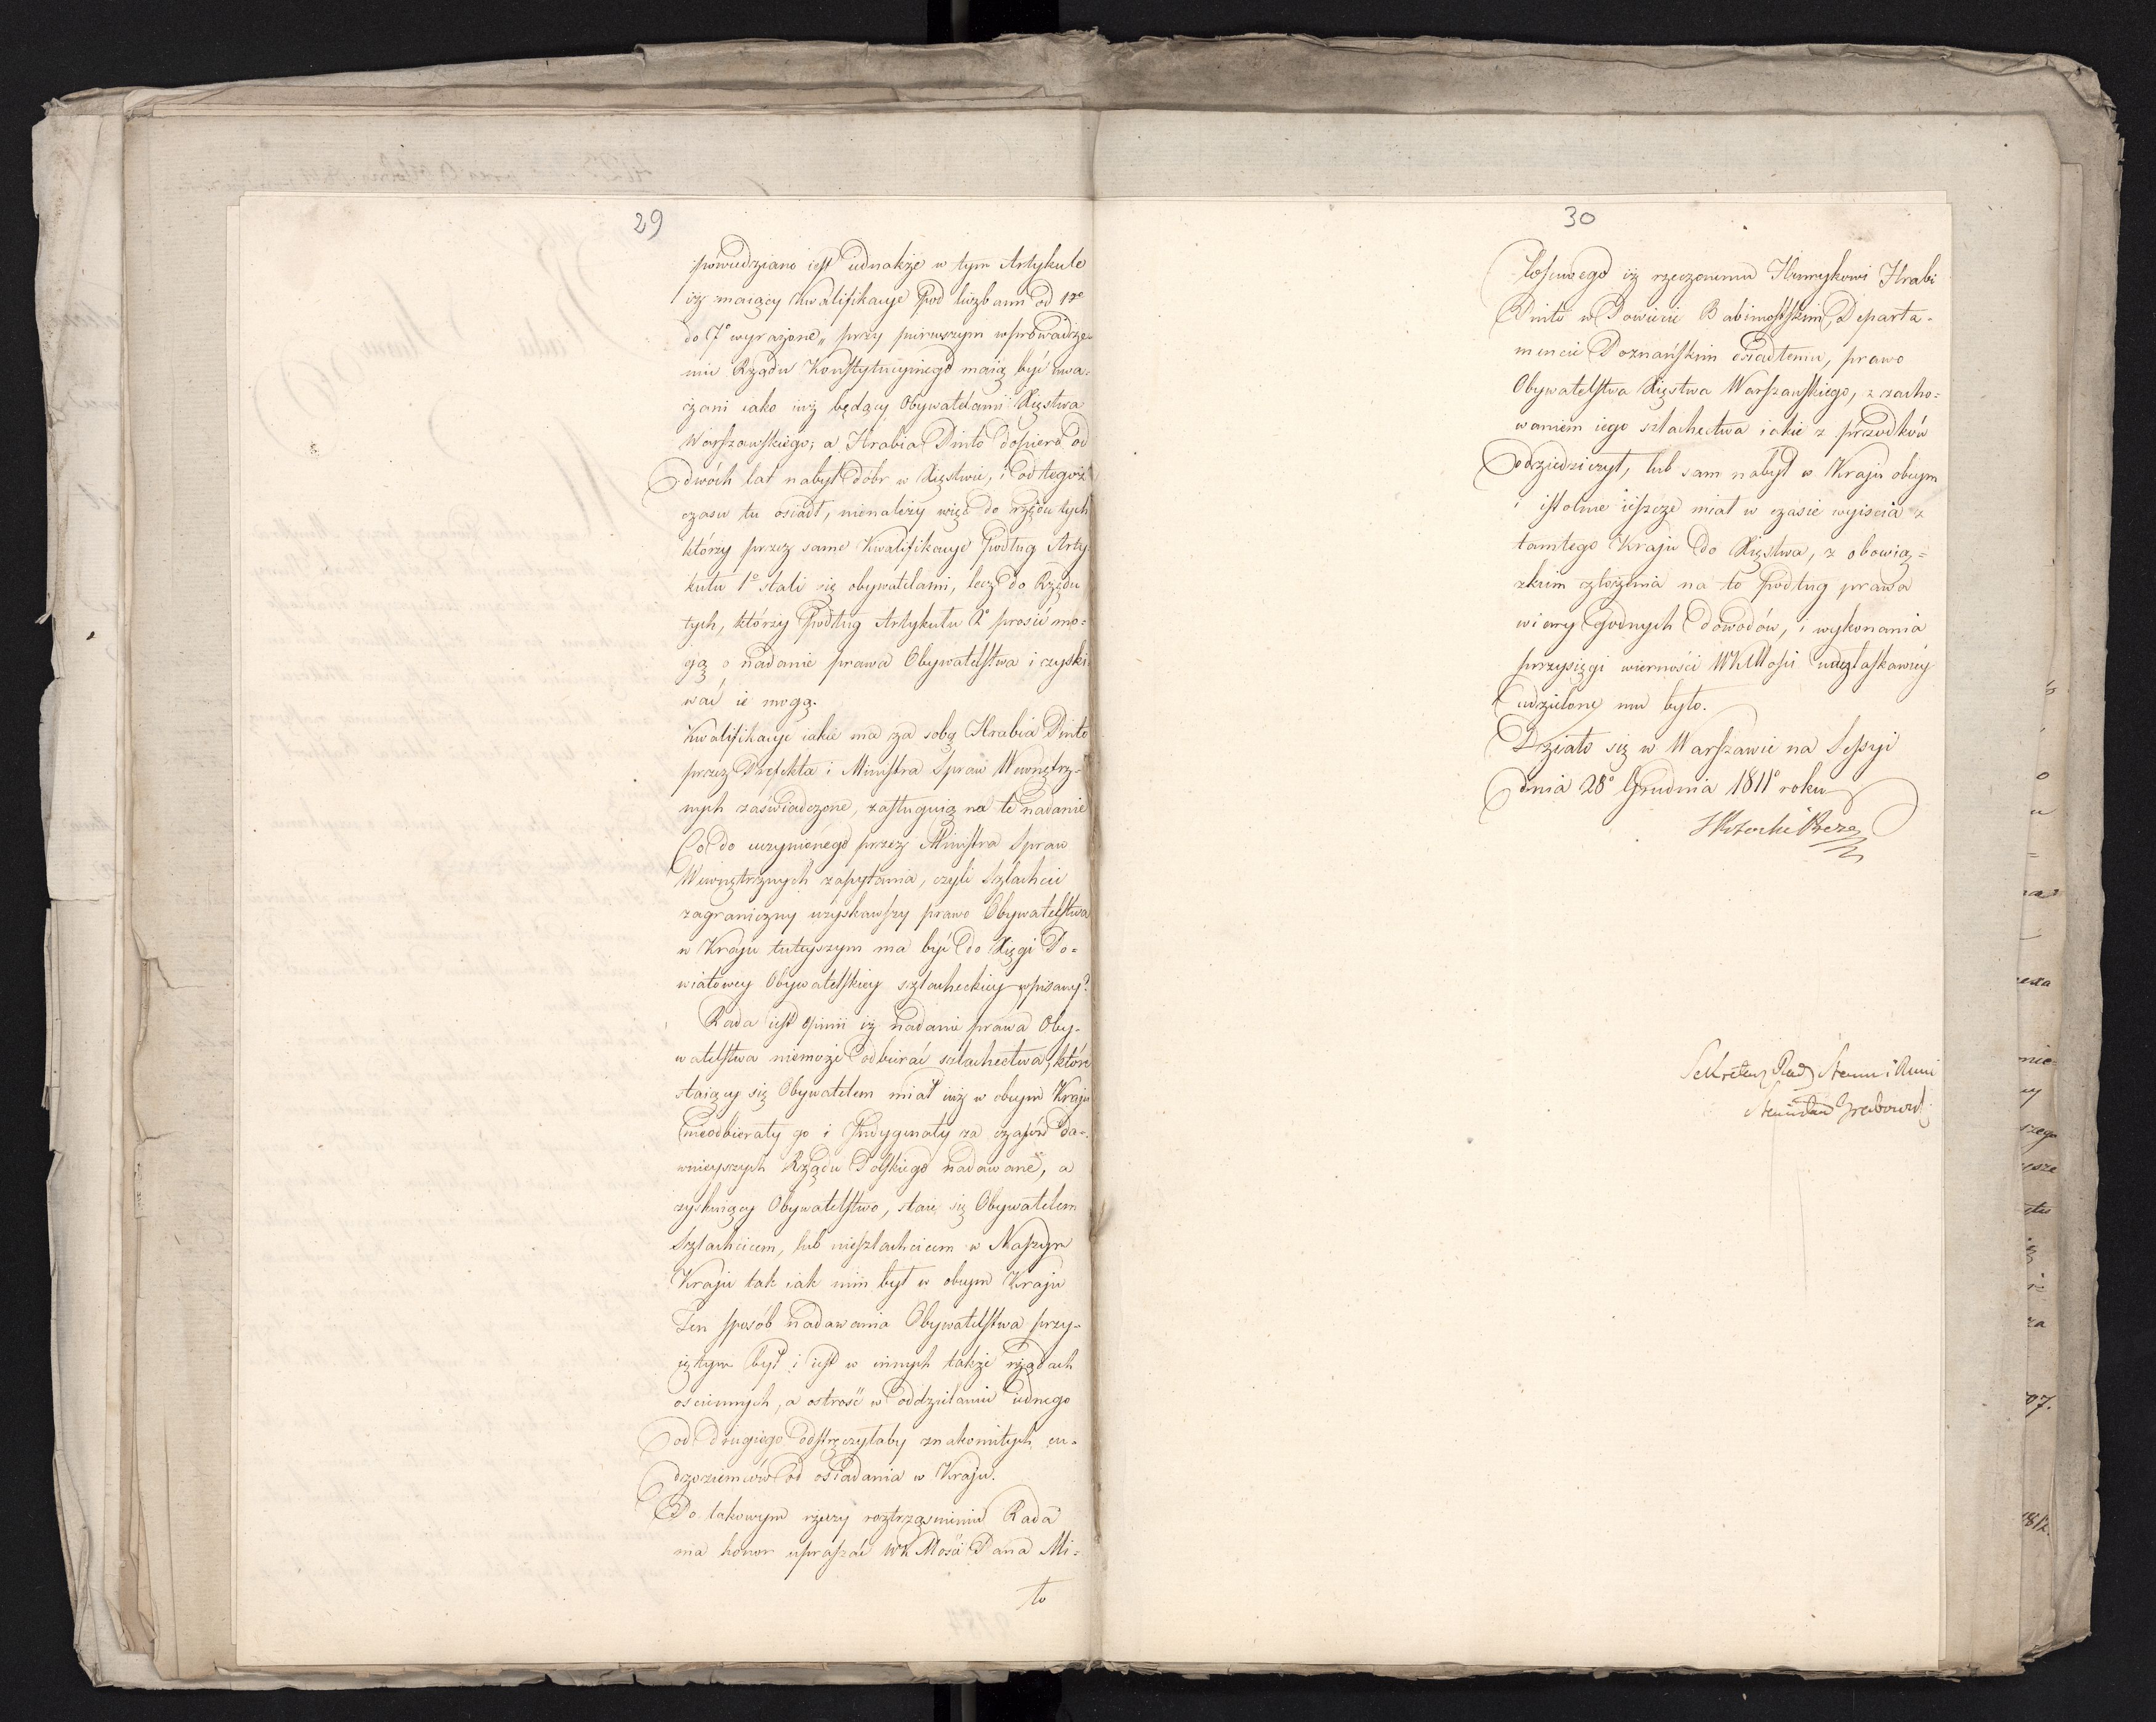 29
powiedziano iest iednakże w tym Artykule
iż maiący kwalifikacye pod liczbami od 1º
do 7º wyrażone „ przy pierwszym wprowadze-
niu Rządu Konstytucyinego maią być uwa-
żani iako iuż będący Obywatelami Xięstwa
Warszawskiego; a Hrabia Pinto dopiero od
dwóch lat nabył dóbr w Xięstwie, i od tegoż
czasu tu osiadł, nienależy więc do rzędu tych
którzy przez same kwalifikacye podług Arty-
kułu 1º stali się obywatelami, lecz do Rzędu
tych, którzy podług Artykułu 2º prosić mo-
gą o nadanie prawa Obywatelstwa i czyski-
wać ie mogą.
Kwalifikacye iakie ma za sobą Hrabia Pinto
przez Prefekta i Ministra Spraw Wewnętrz-
nych zaświadczone, zasługuią na te nadanie
Co do uczynionego przez Ministra Spraw
Wewnętrznych zapytania, czyli Szlachcic
zagraniczny uzyskawszy prawo Obywatelstwa
w Kraju tuteyszym ma być do Xięgi Po-
wiatowey Obywatelskiey szlacheckiey wpisany?
Rada iest opinii iż nadanie prawa Oby-
watelstwa niemoże odbierać szlachectwa, które
staiący się Obywatelem miał iuż w obcym Kraju
nieodbierały go i Indygenaty za czasów da-
wnieyszych Rządu Polskiego nadawane, a
zyskuiący Obywatelstwo, staie się Obywatelem
Szlachcicem, lub nieszlachcicem w Naszym
Kraju tak iak nim był w obcym Kraju
Ten sposób nadawania Obywatelstwa przy-
iętym był i iest w innych także rządach
ościennych, a ostrość w oddzielaniu iednego
od drugiego odstręczyłaby znakomitych cu-
dzoziemców od osiadania w Kraju.
Po takowym rzeczy roztrząśnieniu Rada
ma honor upraszać WK Mość Pana Mi-
to
30
łościwego iż rzeczonemu Henrykowi Hrabi
Pinto w Powiecie Babimostskim, Departa-
mencie Poznańskim osiadłemu, prawo
Obywatelstwa Xięstwa Warszawskiego, z zacho-
waniem iego szlachectwa iakie z przodków
odziedziczył, lub sam nabył w Kraju obcym
i istotnie ieszcze miał w czasie wyiścia z
tamtego Kraju do Xięstwa, z obowią-
zkiem złożenia na to podług prawa
wiary godnych dowodów, i wykonania
przysięgi wierności WKMości nayłaskawiey
udzielone mu było.
Działo się w Warszawie na Sessyi
dnia 28º Grudnia 1811º roku
Sekretarz Rady Stanu i Mini
Stanisław Grabowski